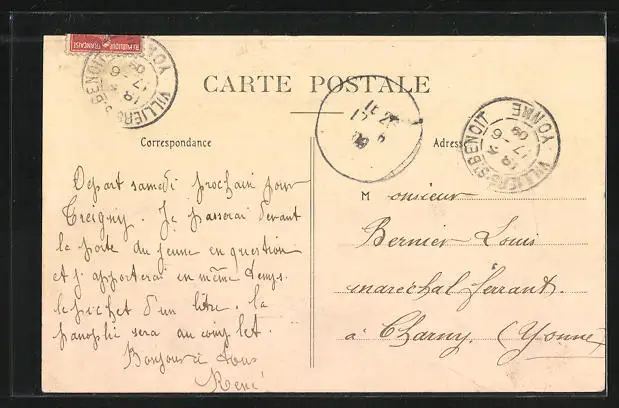 REPUBLIQUE FRANÇAISE
VILLIERS-ST-BENOIT YONNE
18
17-6
09
CARTE POSTALE
Correspondance
Adresse
VILLIERS-ST-BENOIT YONNE
18
17-6
09
Départ samedi prochain pour
Treigny. Je passerai devant
la porte du jeune en question
et j'apporterai en même temps
le pichet d'un litre. la
panoplie sera au complet.
Bonjour à tous
René
Monsieur
Bernier Louis
maréchal ferrant.
à Charny. (Yonne)